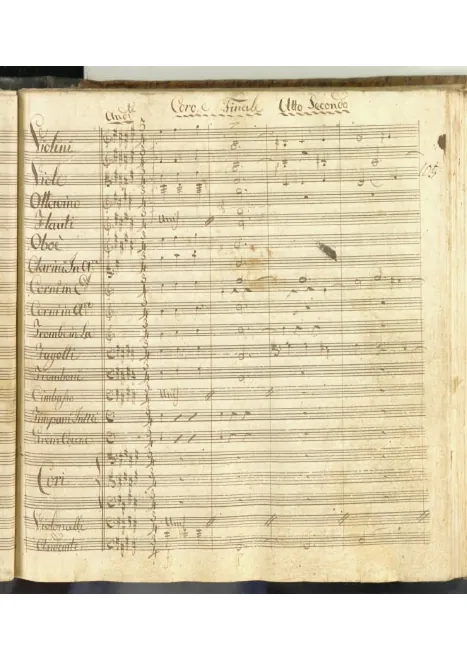 Coro, e Finale Atto Secondo
And.te
Violini
Viole
Ottavino
Flauti
Unis
Oboè
Clarini In
Corni in
Corni in
Trombe in La
Fagotti
Tromboni
Cimbasso
Unis
Timpani
Gran Cassa
Cori
Violoncelli
Unis